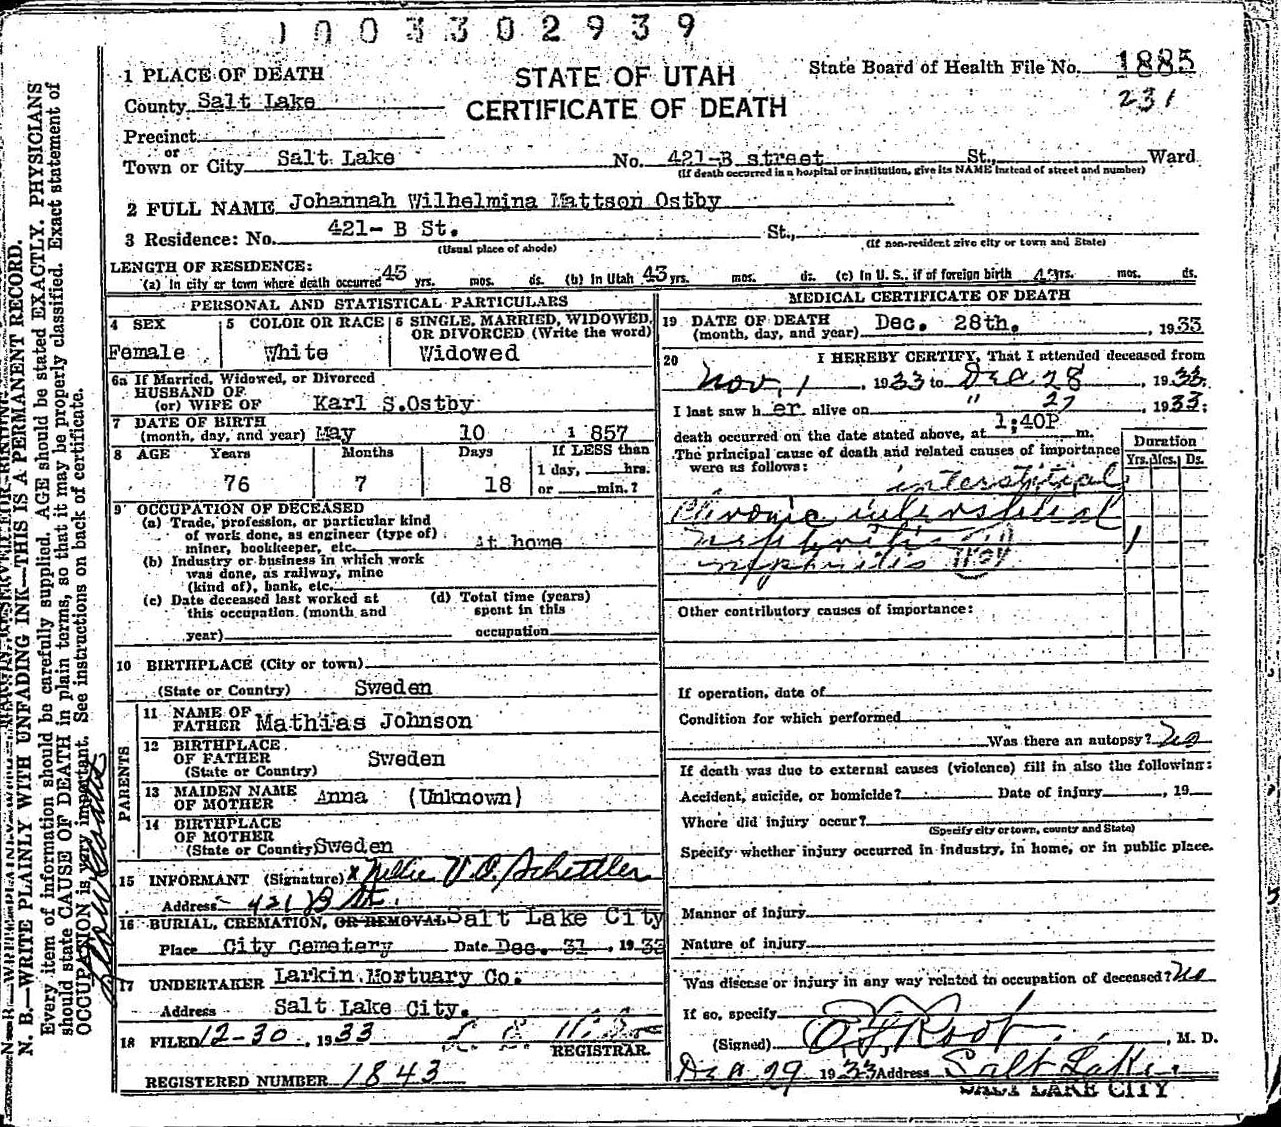 1003302939
1 PLACE OF DEATH
STATE OF UTAH
CERTIFICATE OF DEATH
State Board of Health File No. 1885
231
County Salt Lake
Precinct
or
Town or City Salt Lake No. 421-B street St., Ward
(If death occurred in a hospital or institution, give its NAME instead of street and number)
2 FULL NAME Johannah Wilhelmina Mattson Ostby
3 Residence: No. 421- B St. St.,
(Usual place of abode) (If non-resident give city or town and State)
LENGTH OF RESIDENCE:
(a) In city or town where death occurred 43 yrs. mos. ds. (b) In Utah 43 yrs. mos. ds. (c) In U. S., if of foreign birth 43 yrs. mos. ds.
PERSONAL AND STATISTICAL PARTICULARS
4 SEX
Female
5 COLOR OR RACE
White
6 SINGLE, MARRIED, WIDOWED, OR DIVORCED (Write the word)
Widowed
6a If Married, Widowed, or Divorced
HUSBAND OF
(or) WIFE OF Karl S.Ostby
7 DATE OF BIRTH
(month, day, and year) May 10 1857
8 AGE Years Months Days If LESS than
1 day, hrs.
76 7 18 or min.?
9 OCCUPATION OF DECEASED
(a) Trade, profession, or particular kind
of work done, as engineer (type of)
miner, bookkeeper, etc. At home
(b) Industry or business in which work
was done, as railway, mine
(kind of), bank, etc.
(c) Date deceased last worked at
this occupation (month and
year)
(d) Total time (years)
spent in this
occupation
10 BIRTHPLACE (City or town)
(State or Country) Sweden
PARENTS
11 NAME OF
FATHER Mathias Johnson
12 BIRTHPLACE
OF FATHER Sweden
(State or Country)
13 MAIDEN NAME
OF MOTHER Anna (Unknown)
14 BIRTHPLACE
OF MOTHER
(State or Country) Sweden
15 INFORMANT (Signature) x Nellie V.O. Schettler
Address 421 B St.
16 BURIAL, CREMATION, OR REMOVAL Salt Lake City
Place City Cemetery Date Dec. 31, 1933
17 UNDERTAKER Larkin Mortuary Co.
Address Salt Lake City.
18 FILED 12-30, 1933
REGISTRAR.
REGISTERED NUMBER 1843
MEDICAL CERTIFICATE OF DEATH
19 DATE OF DEATH
(month, day, and year) Dec. 28th, 1933
20 I HEREBY CERTIFY, That I attended deceased from
Nov, 1, 1933 to Dec. 28, 1933
I last saw her alive on " 27 1933;
death occurred on the date stated above, at 1;40P m.
The principal cause of death and related causes of importance
were as follows:
Duration
Yrs. Mos. Ds.
interstitial
Chronic interstitial
nephritis 1
nephritis
Other contributory causes of importance:
If operation, date of
Condition for which performed
Was there an autopsy? No
If death was due to external causes (violence) fill in also the following:
Accident, suicide, or homicide? Date of injury, 19
Where did injury occur?
(Specify city or town, county and State)
Specify whether injury occurred in industry, in home, or in public place.
Manner of injury
Nature of injury
Was disease or injury in any way related to occupation of deceased? No
If so, specify
(Signed) Root, M. D.
Dec 29 1933 Address Salt Lake
SALT LAKE CITY
N. B.—WRITE PLAINLY WITH UNFADING INK—THIS IS A PERMANENT RECORD.
Every item of information should be carefully supplied. AGE should be stated EXACTLY. PHYSICIANS
should state CAUSE OF DEATH in plain terms, so that it may be properly classified. Exact statement of
OCCUPATION is very important. See instructions on back of certificate.